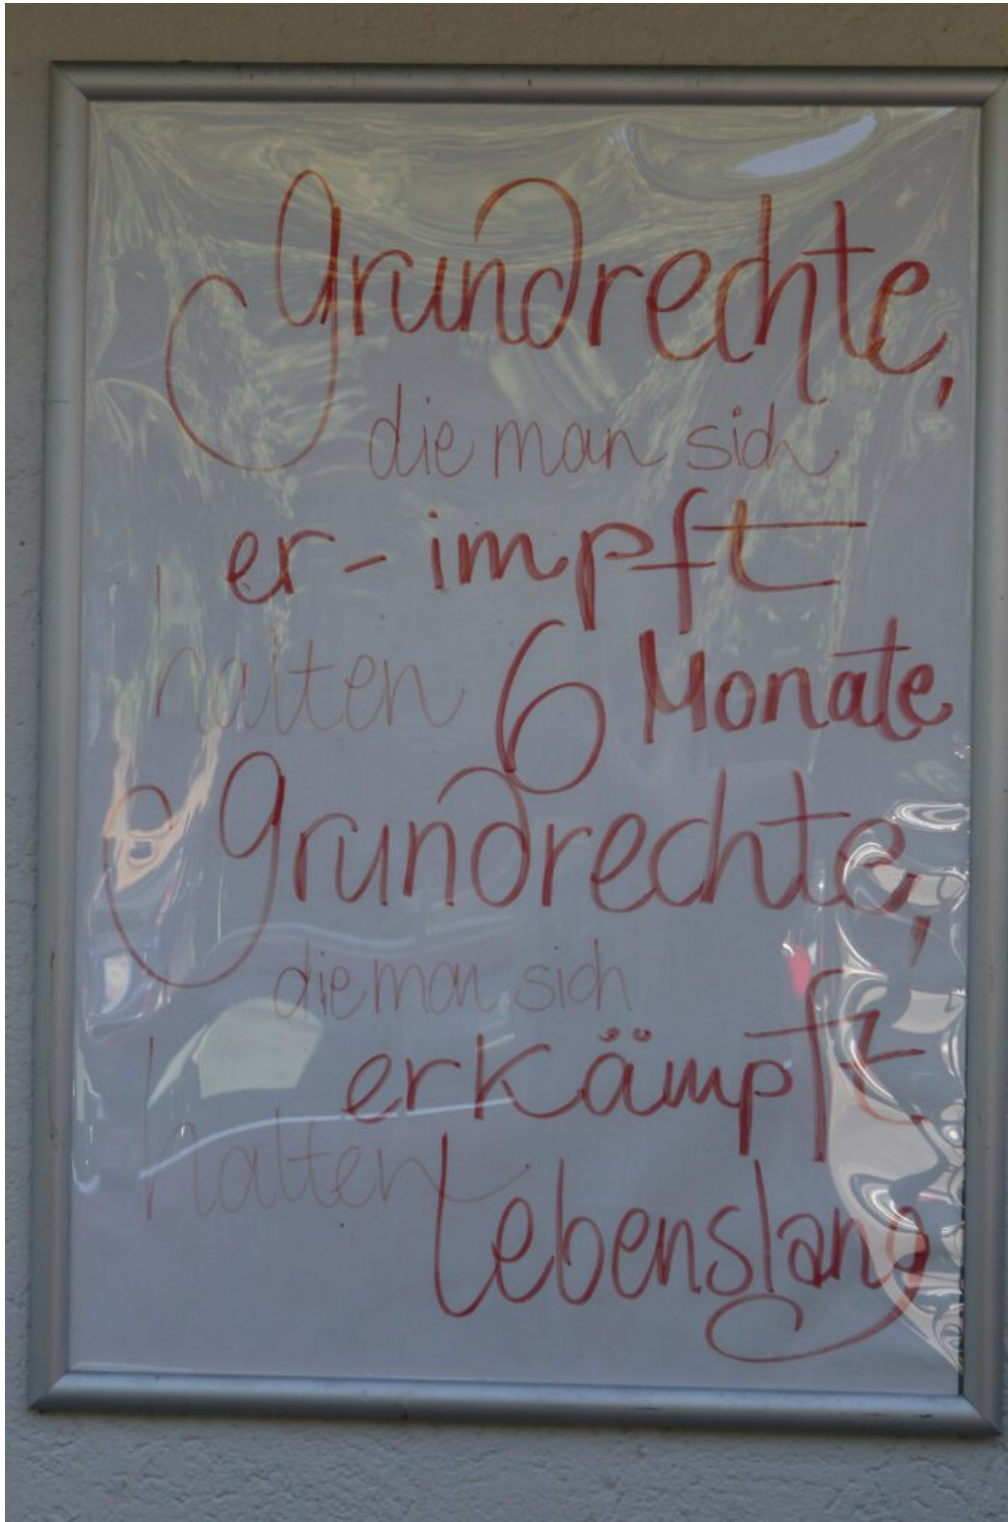 Grundrechte,
die man sich
er-impft
halten 6 Monate
Grundrechte,
die man sich
erkämpft
halten Lebenslang